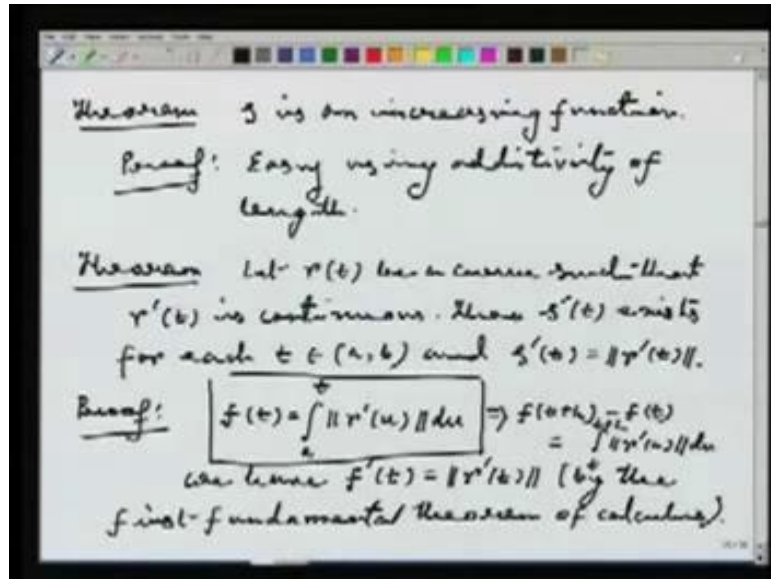 Theorem s is an increasing function.
Proof: Easy using additivity of
length.
Theorem Let r(t) be a curve such that
r'(t) is continuous. Then s'(t) exists
for each t ∈ (a, b) and s'(t) = ||r'(t)||.
Proof: f(t) = ∫_a^t ||r'(u)|| du ⇒ f(t+h) - f(t)
= ∫_t^{t+h} ||r'(u)|| du
we have f'(t) = ||r'(t)|| (by the
first fundamental theorem of calculus).